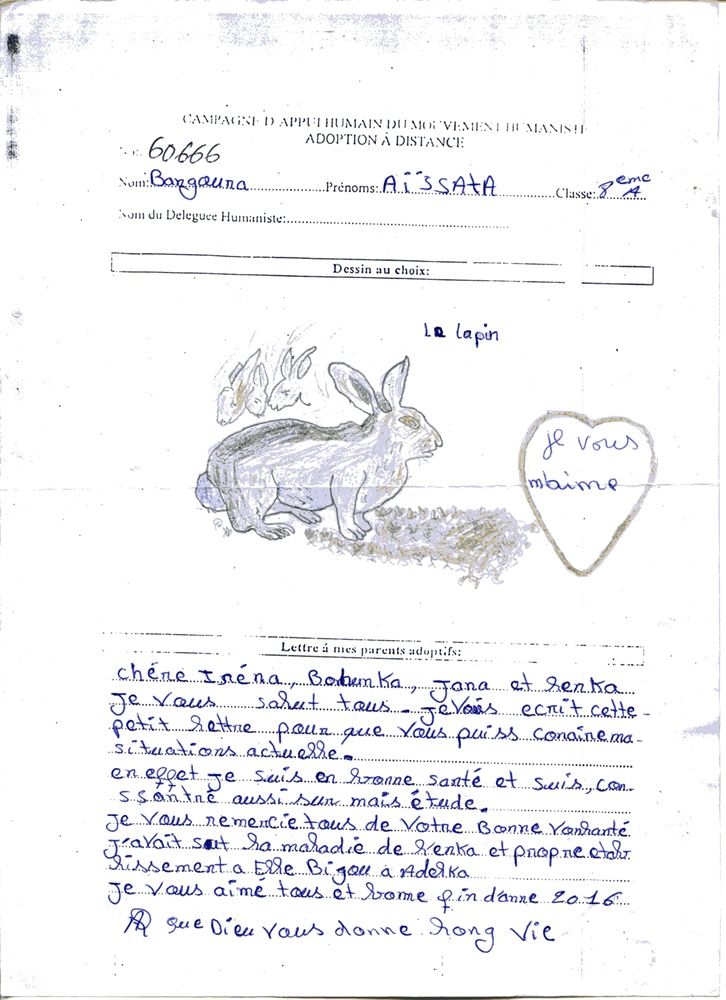 CAMPAGNE D'APPUI HUMAIN DU MOUVEMENT HUMANISTE
ADOPTION À DISTANCE
60666
Nom: Bangoura Prénoms: AïSSAtA Classe: 8eme A
Nom du Deleguee Humaniste:
Dessin au choix:
Le lapin
je vous
m'aime
Lettre á mes parents adoptifs:
chére Iréna, Bohunka, Jana et Lenka
Je vous salut tous. je vous ecrit cette-
petit lettre pour que vous puiss conaine ma-
situations actuelle.
en effet je suis en bonne santé et suis, con-
ssantré aussi sur mais étude.
Je vous remercie tous de votre Bonne Vonlanté
j'avait sut la maladie de Lenka et propre etabl
lissement a Elle Bigou à Adelka
Je vous aimé tous et bonne fin d'anne 2016
que Dieu vous donne long Vie